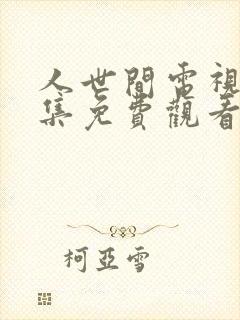 人世間電視
集免費觀看
柯亞雪